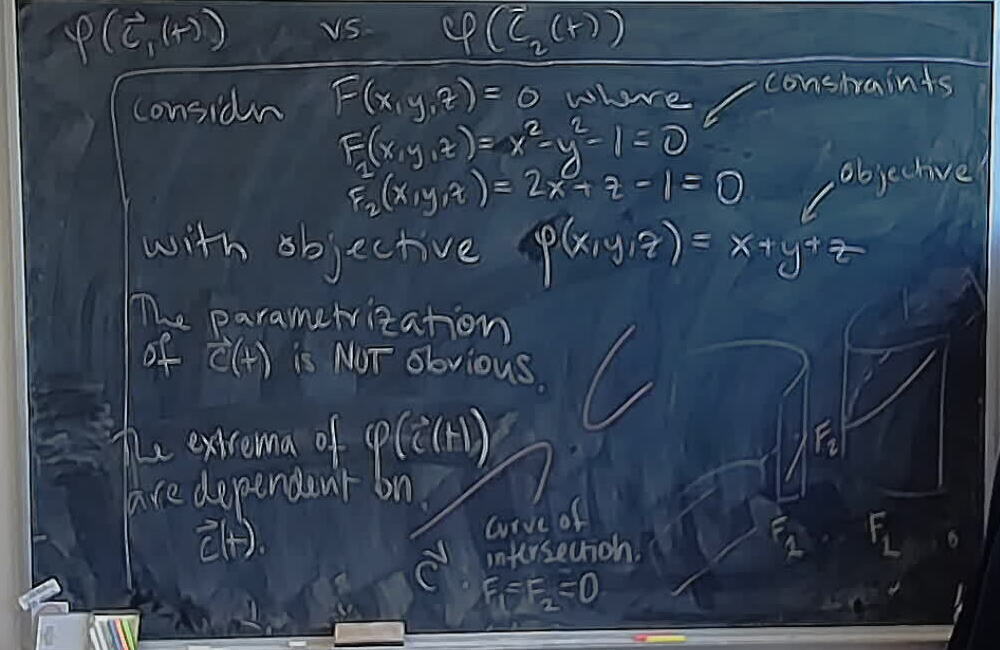 φ(c⃗₁(t)) vs. φ(c⃗₂(t))
consider F(x,y,z) = 0 where
constraints
F₁(x,y,z) = x² - y² - 1 = 0
F₂(x,y,z) = 2x + z - 1 = 0
objective
with objective φ(x,y,z) = x+y+z
The parametrization
of c⃗(t) is NOT obvious.
The extrema of φ(c⃗(t))
are dependent on
c⃗(t).
F₂
F₁
F₁
c⃗
curve of
intersection.
F₁=F₂=0